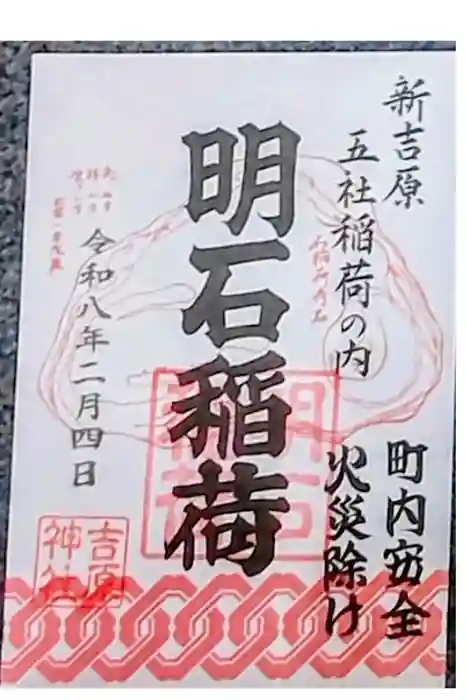 新吉原
五社稲荷の内
町内安全
火災除け
明石稲荷
令和八年二月四日
吉原
神社
明石
稲荷